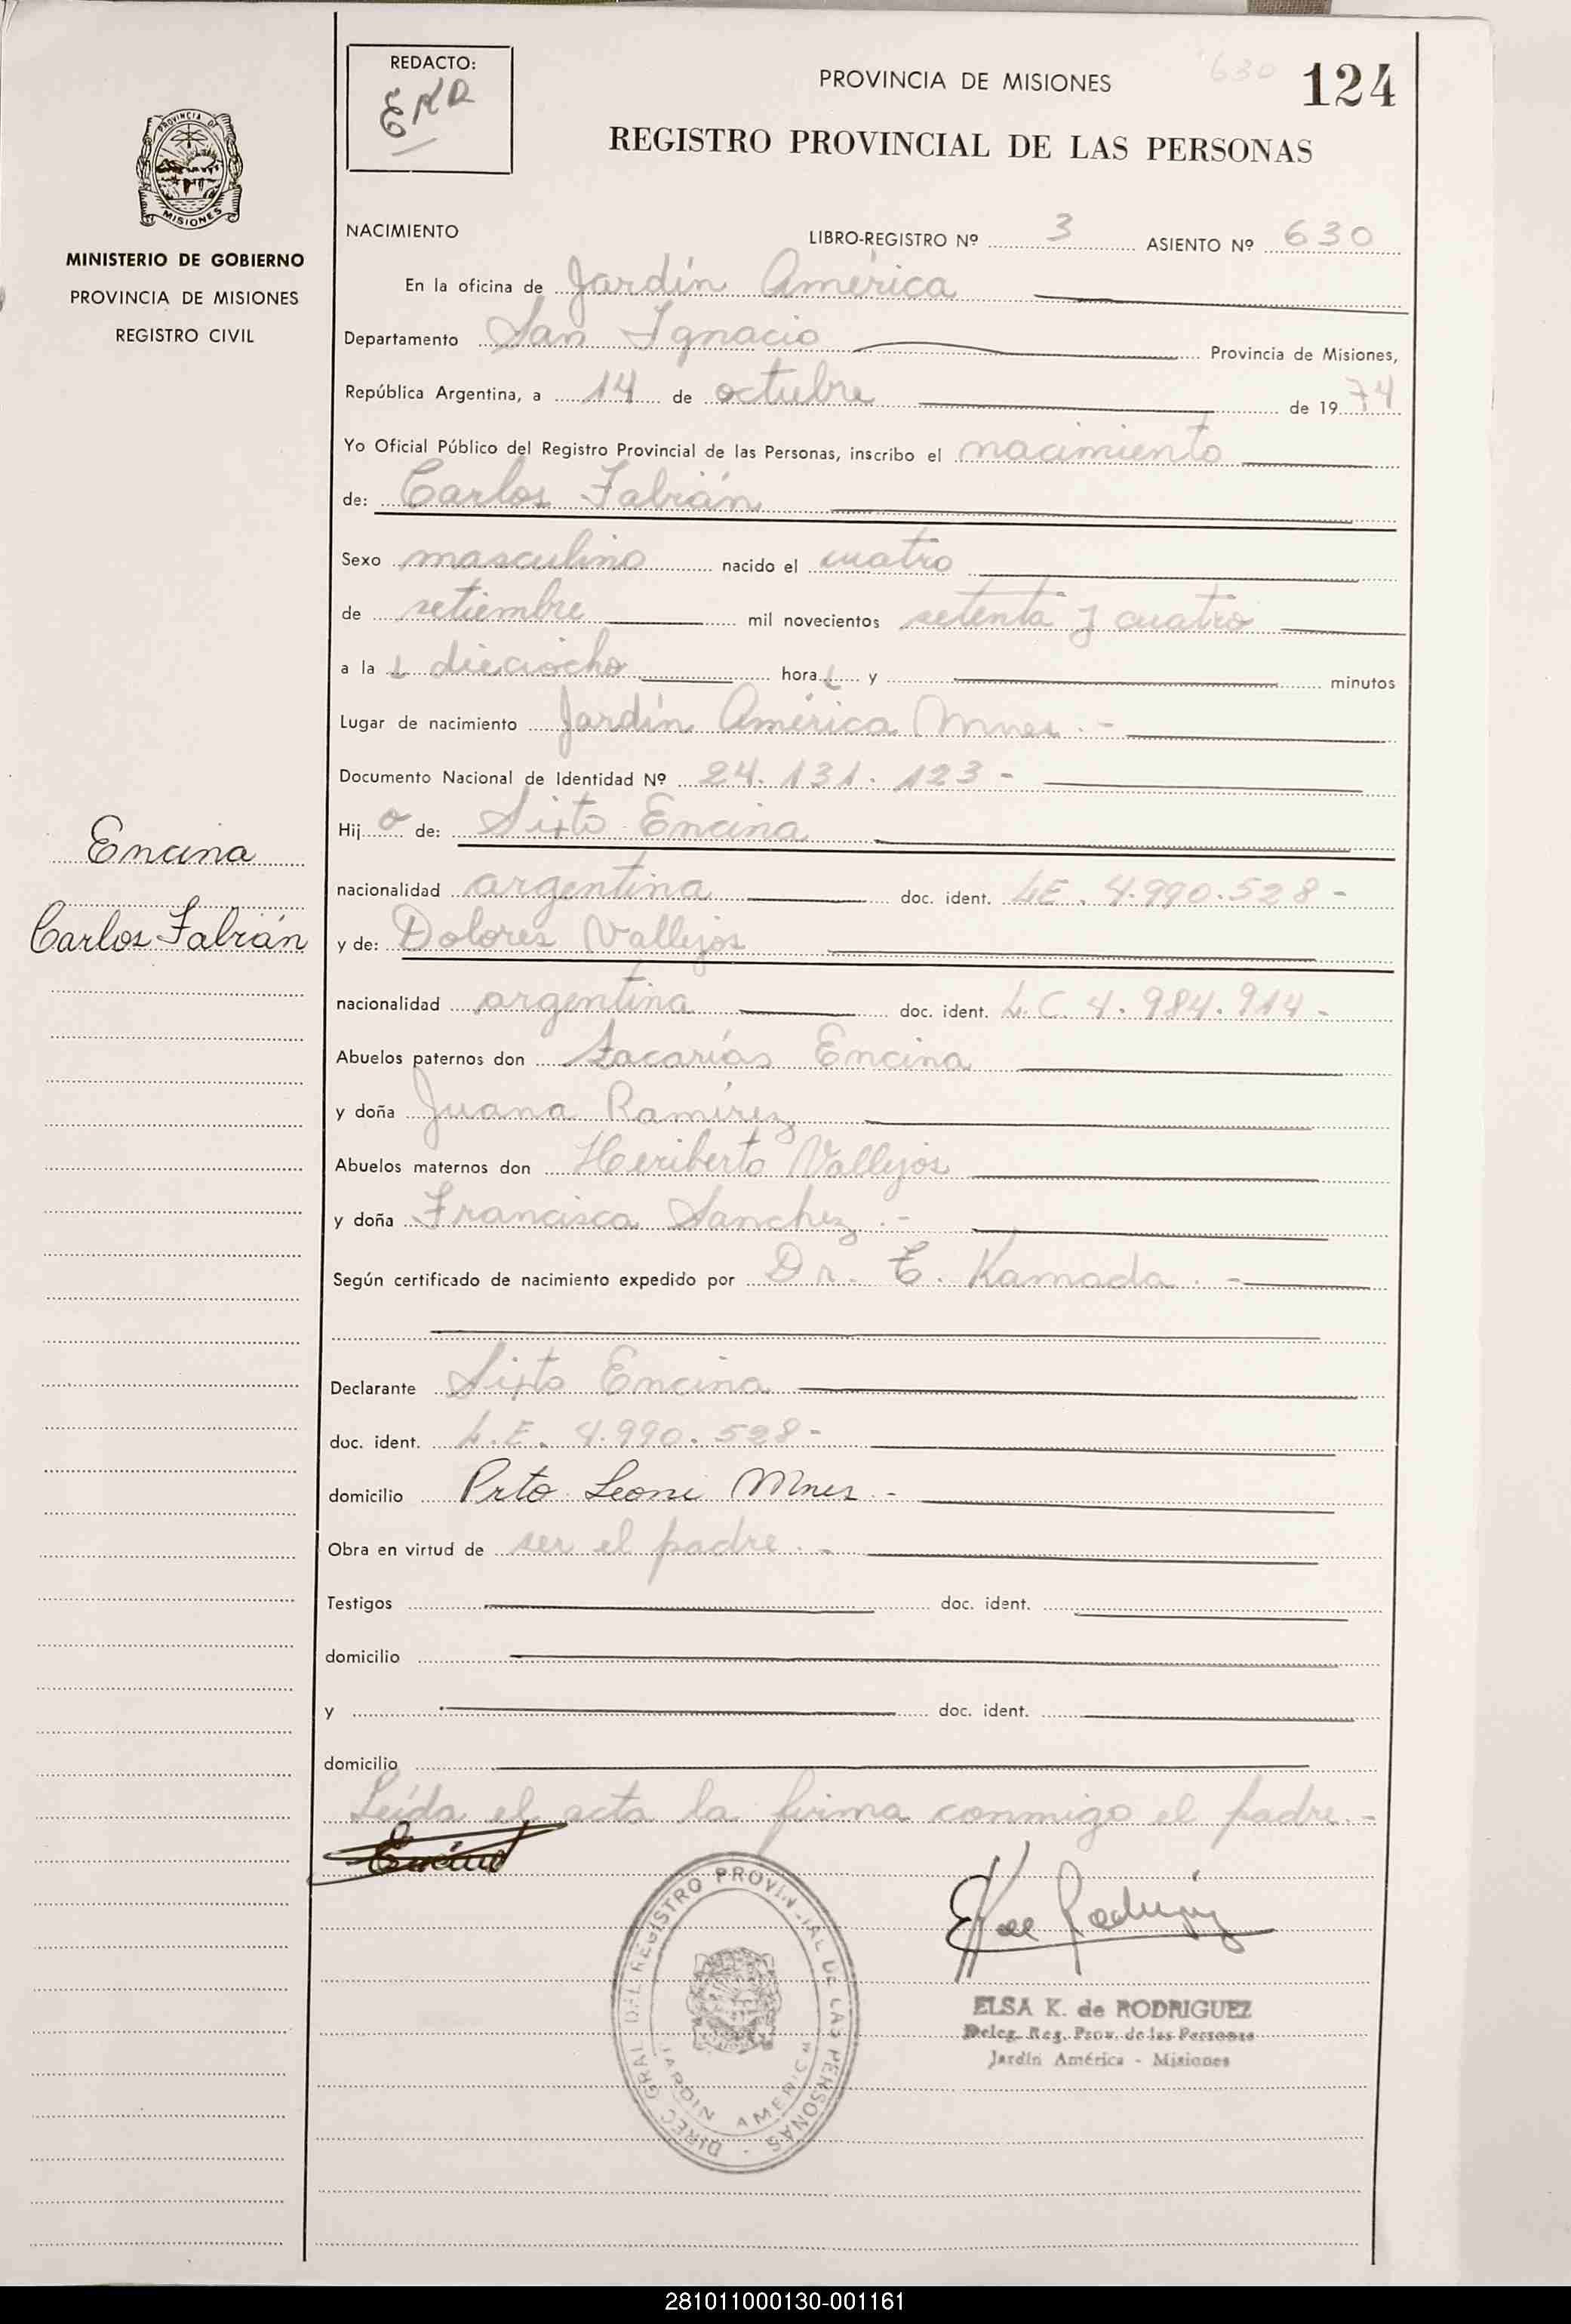 REDACTO:
EKR
PROVINCIA DE MISIONES
630
124
REGISTRO PROVINCIAL DE LAS PERSONAS
PROVINCIA DE
MISIONES
MINISTERIO DE GOBIERNO
PROVINCIA DE MISIONES
REGISTRO CIVIL
NACIMIENTO LIBRO-REGISTRO Nº 3 ASIENTO Nº 630
En la oficina de Jardín América
Departamento San Ignacio Provincia de Misiones,
República Argentina, a 14 de octubre de 1974
Yo Oficial Público del Registro Provincial de las Personas, inscribo el nacimiento
de: Carlos Fabián
Sexo masculino nacido el cuatro
de setiembre mil novecientos setenta y cuatro
a las dieciocho horas y minutos
Lugar de nacimiento Jardín América Mnes.-
Documento Nacional de Identidad Nº 24.131.123-
Hijo de: Sixto Encina
Encina
nacionalidad argentina doc. ident. LE. 4.990.528-
Carlos Fabián
y de: Dolores Vallejos
nacionalidad argentina doc. ident. L.C. 4.984.914-
Abuelos paternos don Zacarías Encina
y doña Juana Ramírez
Abuelos maternos don Heriberto Vallejos
y doña Francisca Sanchez.-
Según certificado de nacimiento expedido por Dr. E. Kamada.-
Declarante Sixto Encina
doc. ident. L.E. 4.990.528-
domicilio Prto Leoni Mnes.-
Obra en virtud de ser el padre.-
Testigos doc. ident.
domicilio
y doc. ident.
domicilio
Leída el acta la firma conmigo el padre.-
Encina
DIREC GRAL DEL REGISTRO PROVINCIAL DE LAS PERSONAS -
JARDIN AMERICA
E K de Rodriguez
ELSA K. de RODRIGUEZ
Deleg. Reg. Prov. de las Personas
Jardín América - Misiones
281011000130-001161